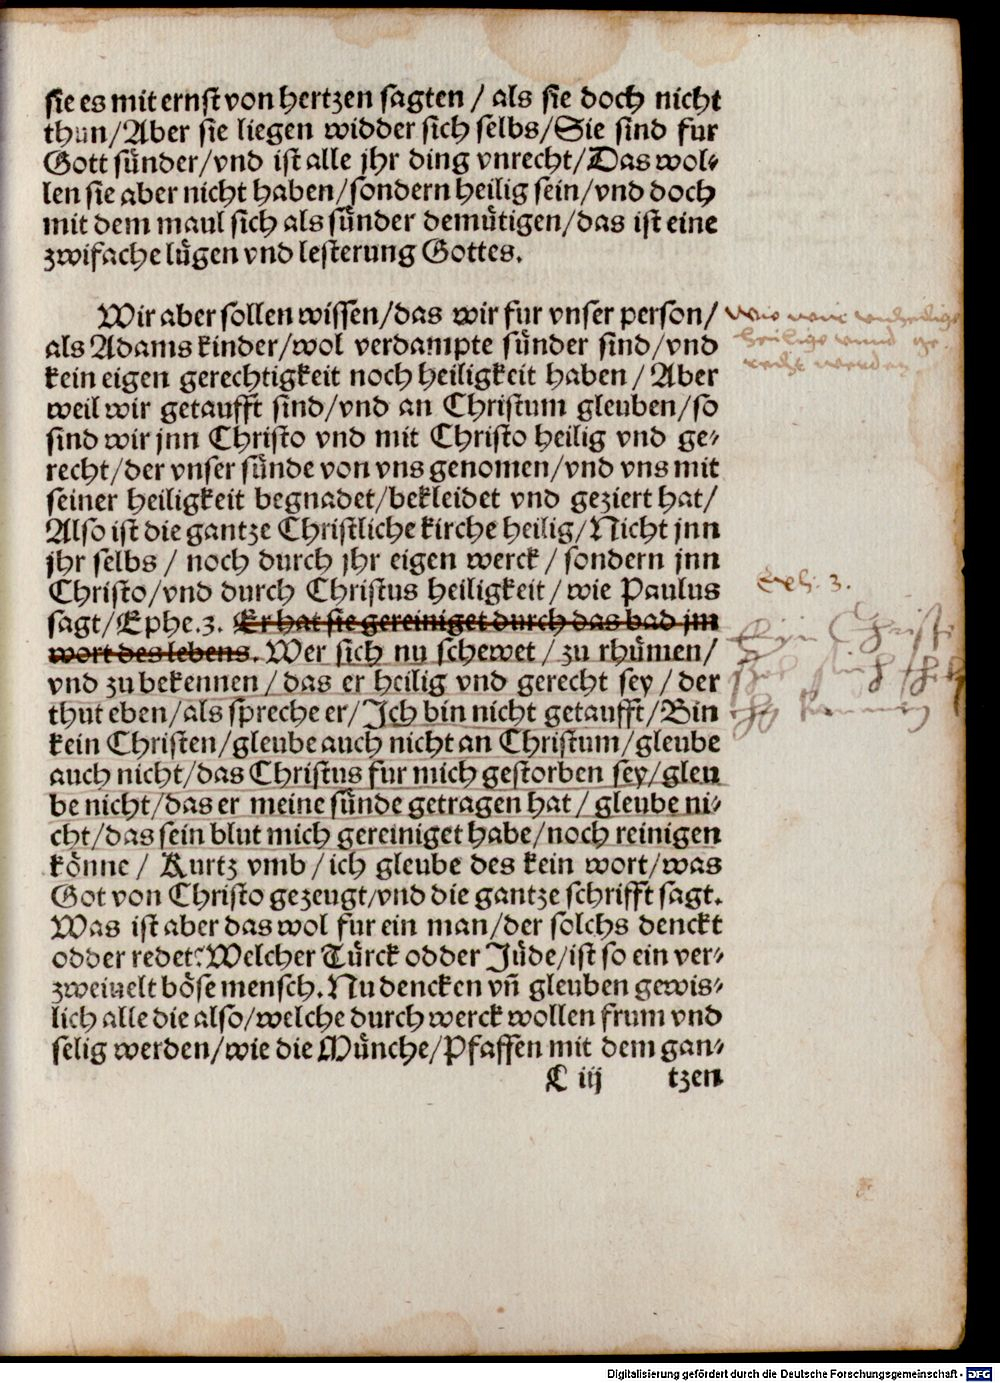 sie es mit ernst von hertzen sagten / als sie doch nicht
thun/Aber sie liegen widder sich selbs/Sie sind fur
Gott sünder/vnd ist alle jhr ding vnrecht/Das wol-
len sie aber nicht haben/sondern heilig sein/vnd doch
mit dem maul sich als sünder demütigen/das ist eine
zwifache lügen vnd lesterung Gottes.
Wir aber sollen wissen/das wir fur vnser person/
als Adams kinder/wol verdampte sünder sind/vnd
kein eigen gerechtigkeit noch heiligkeit haben / Aber
weil wir getaufft sind/vnd an Christum gleuben/so
sind wir jnn Christo vnd mit Christo heilig vnd ge-
recht/der vnser sünde von vns genomen/vnd vns mit
seiner heiligkeit begnadet/bekleidet vnd geziert hat/
Also ist die gantze Christliche kirche heilig/Nicht jnn
jhr selbs / noch durch jhr eigen werck / sondern jnn
Christo/vnd durch Christus heiligkeit / wie Paulus
sagt/Ephe.3. Er hat sie gereiniget durch das bad jm
wort des lebens. Wer sich nu schewet / zu rhümen/
vnd zu bekennen / das er heilig vnd gerecht sey / der
thut eben/als spreche er/Ich bin nicht getaufft/Bin
kein Christen/gleube auch nicht an Christum/gleube
auch nicht/das Christus fur mich gestorben sey/gleu
be nicht/das er meine sünde getragen hat / gleube ni-
cht/das sein blut mich gereiniget habe/noch reinigen
könne / Kurtz vmb / ich gleube des kein wort/was
Got von Christo gezeugt/vnd die gantze schrifft sagt.
Was ist aber das wol fur ein man/der solchs denckt
odder redet? Welcher Türck odder Jüde/ist so ein ver-
zweiuelt böse mensch. Nu dencken vñ gleuben gewis-
lich alle die also/welche durch werck wollen frum vnd
selig werden/wie die Münche/Pfaffen mit dem gan-
C iij tzen
heilige vnnd ge
recht werden
Eph. 3.
Ein Christ
sich
Digitalisierung gefördert durch die Deutsche Forschungsgemeinschaft - DFG